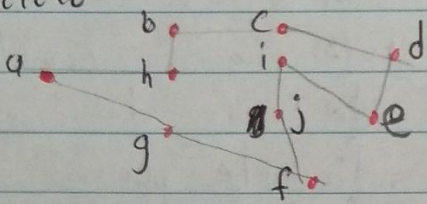 b c d
a h i
j e
g f